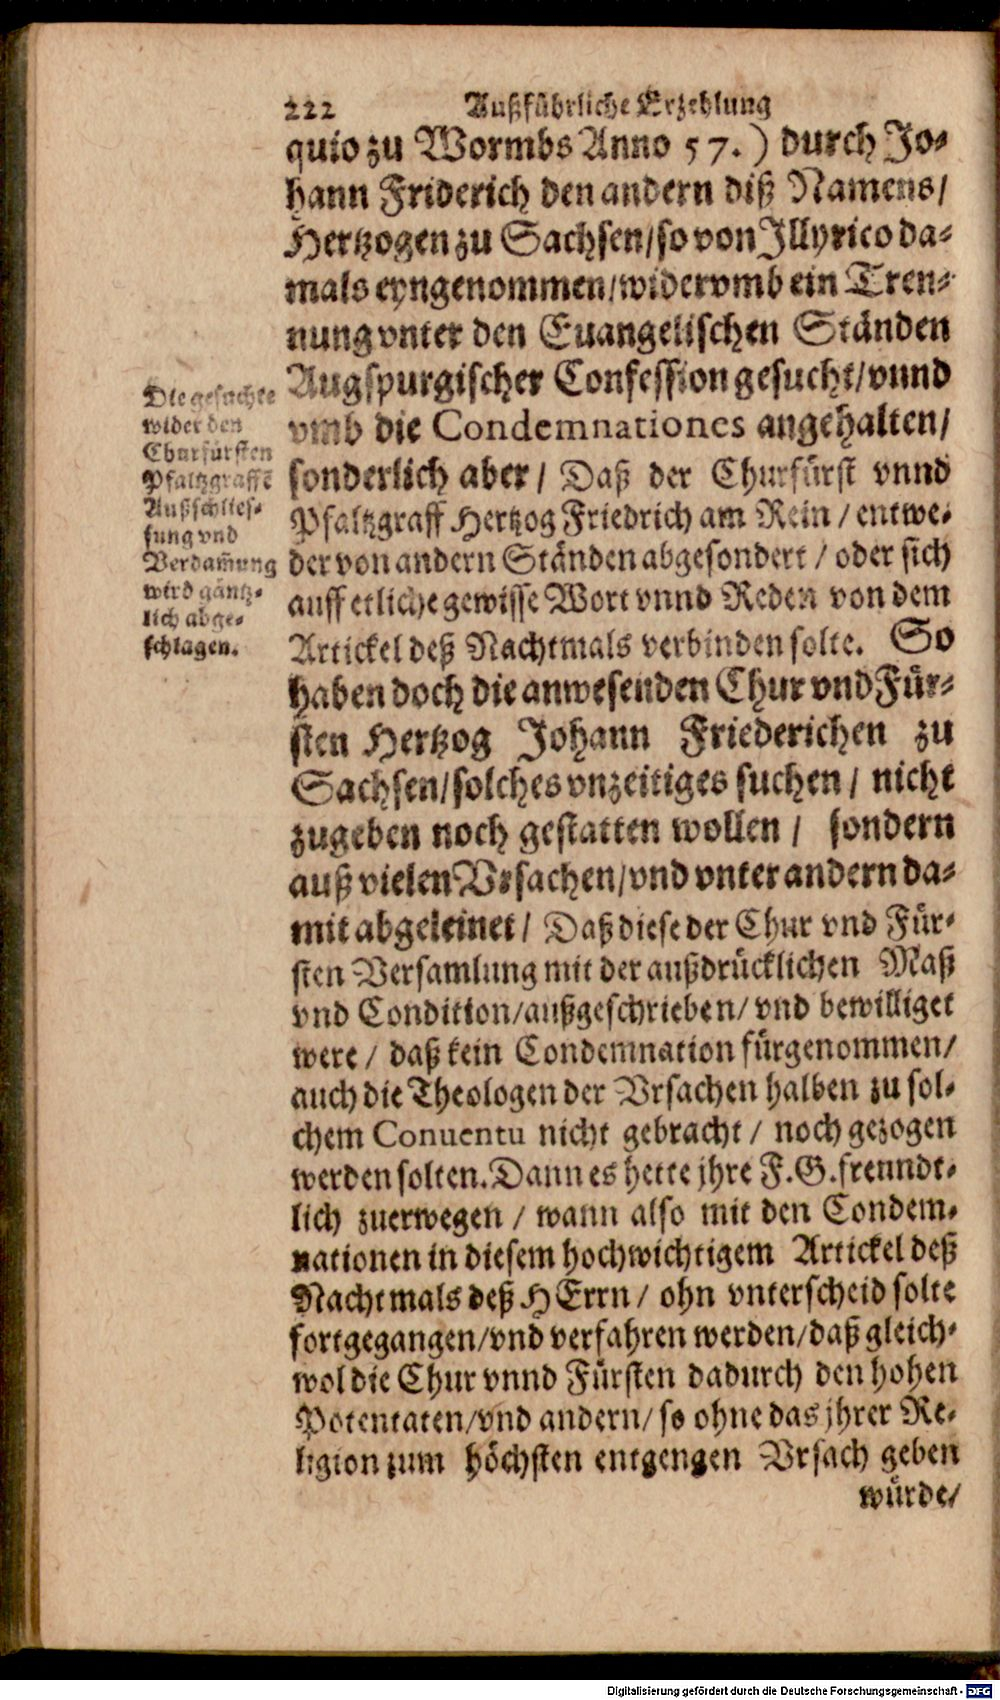 222 Außführliche Erzehlung
quio zu Wormbs Anno 57.) durch Jo-
hann Friderich den andern diß Namens/
Hertzogen zu Sachsen/so von Illyrico da-
mals eyngenommen/widervmb ein Tren-
nung vnter den Euangelischen Ständen
Augspurgischer Confession gesucht/vnnd
vmb die Condemnationes angehalten/
sonderlich aber/ Daß der Churfürst vnnd
Pfaltzgraff Hertzog Friedrich am Rein/ entwe-
der von andern Ständen abgesondert/ oder sich
auff etliche gewisse Wort vnnd Reden von dem
Artickel deß Nachtmals verbinden solte. So
haben doch die anwesenden Chur vnd Für-
sten Hertzog Johann Friederichen zu
Sachsen/solches vnzeitiges suchen/ nicht
zugeben noch gestatten wollen/ sondern
auß vielen Vrsachen/vnd vnter andern da-
mit abgeleinet/ Daß diese der Chur vnd Für-
sten Versamlung mit der außdrücklichen Maß
vnd Condition/außgeschrieben/vnd bewilliget
were/ daß kein Condemnation fürgenommen/
auch die Theologen der Vrsachen halben zu sol-
chem Conuentu nicht gebracht/ noch gezogen
werden solten. Dann es hette jhre F.G. freundt-
lich zuerwegen/ wann also mit den Condem-
nationen in diesem hochwichtigem Artickel deß
Nachtmals deß HErrn/ ohn vnterscheid solte
fortgegangen/vnd verfahren werden/daß gleich-
wol die Chur vnnd Fürsten dadurch den hohen
Potentaten/vnd andern/so ohne das jhrer Re-
ligion zum höchsten entgengen Vrsach geben
würde/
Die gesuchte
wider den
Churfürsten
Pfaltzgraffē
Außschlies-
sung vnd
Verdam̄ung
wird gäntz-
lich abge-
schlagen.
Digitalisierung gefördert durch die Deutsche Forschungsgemeinschaft - DFG